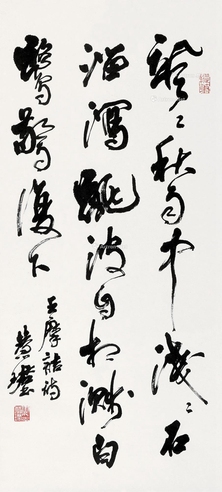 颯〻秋雨中淺〻石
溜瀉跳波自相濺白
鷺驚復下
王摩詰詩